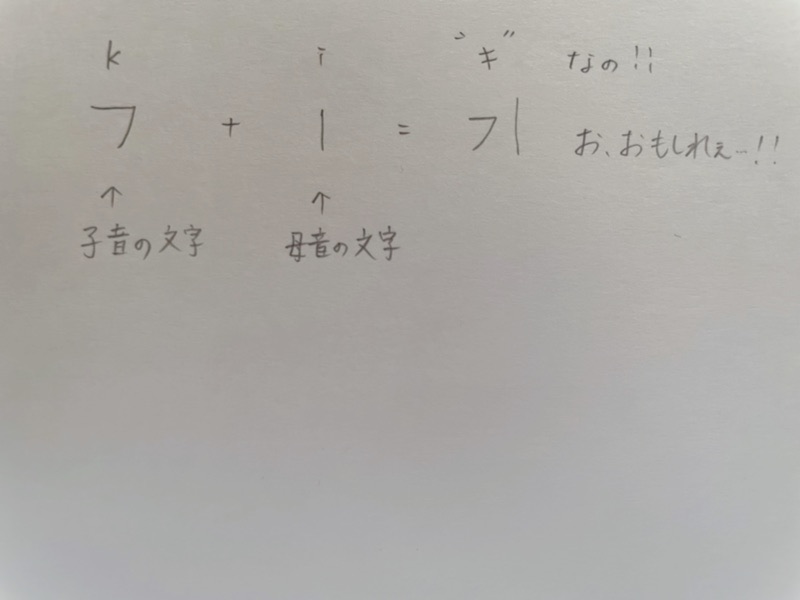 k i “キ” なの!!
ㄱ + ㅣ = 기 お、おもしれぇ…!!
↑ ↑
子音の文字 母音の文字